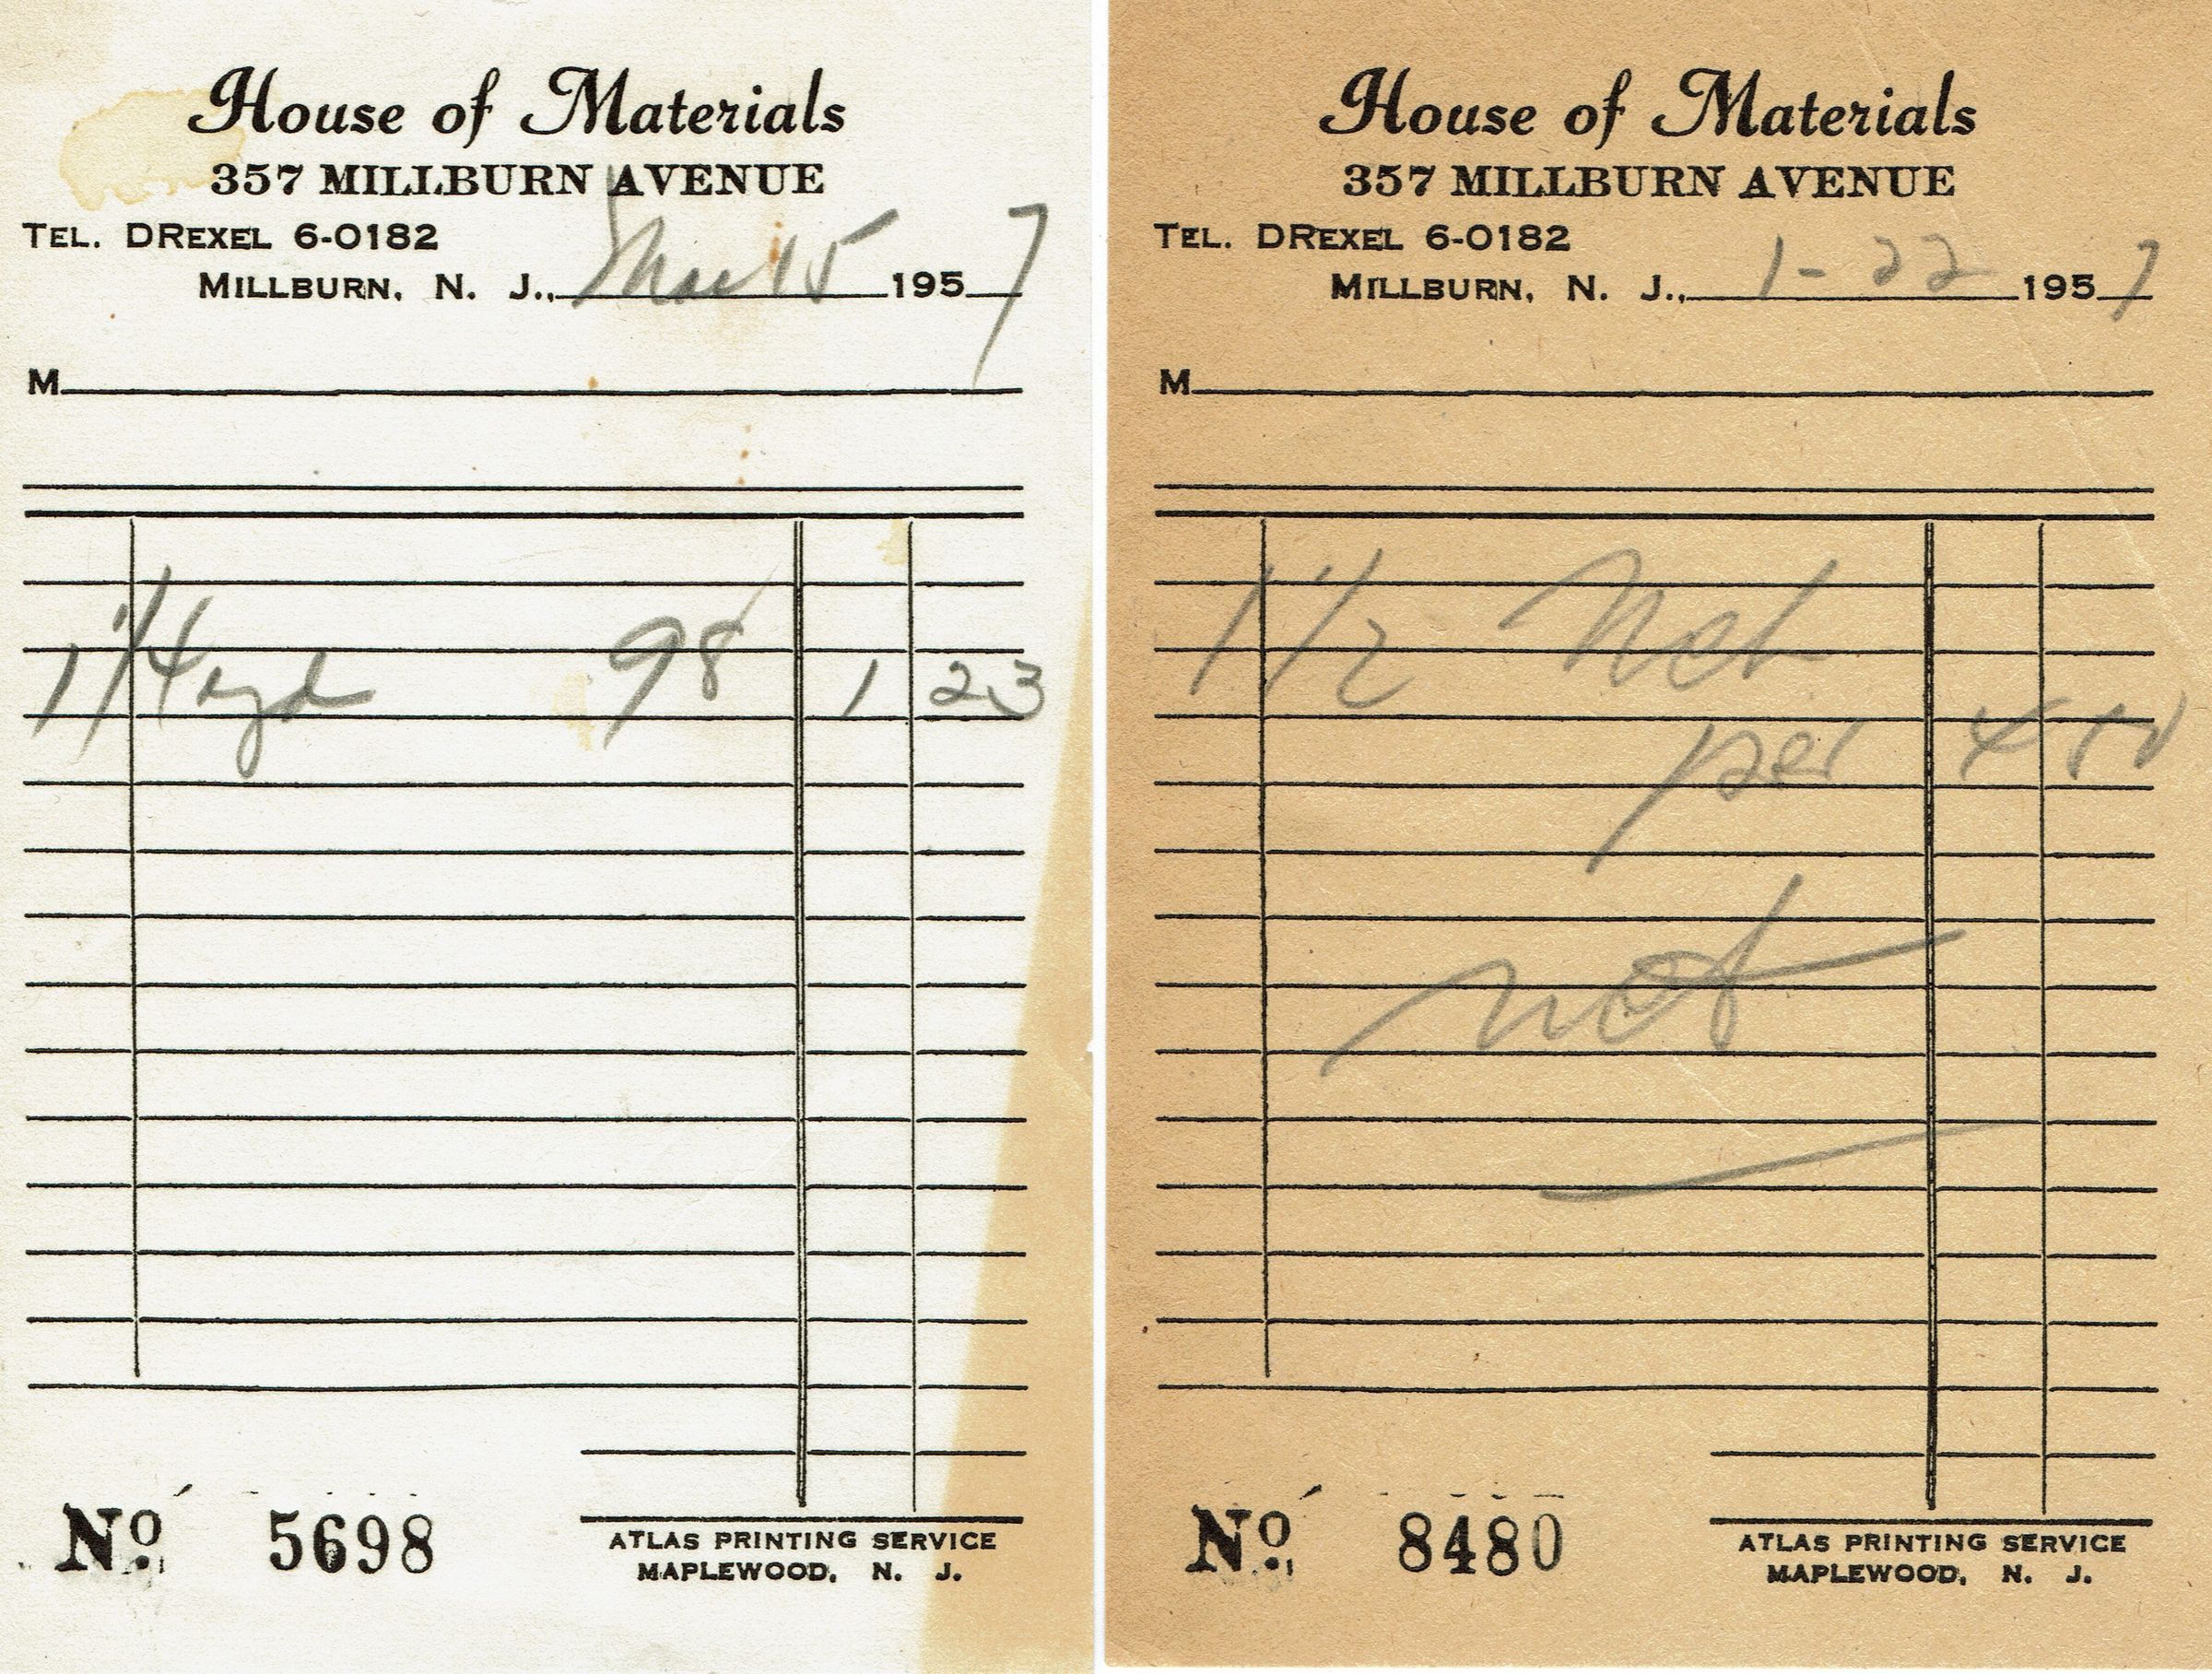 House of Materials
357 MILLBURN AVENUE
TEL. DREXEL 6-0182
MILLBURN, N. J., Mar 15 1957
M
1 1/4 yd 98 1 23
No. 5698
ATLAS PRINTING SERVICE
MAPLEWOOD, N. J.
House of Materials
357 MILLBURN AVENUE
TEL. DREXEL 6-0182
MILLBURN, N. J., 1-22 1957
M
1 1/2 Net
per 4 50
not
No. 8480
ATLAS PRINTING SERVICE
MAPLEWOOD, N. J.